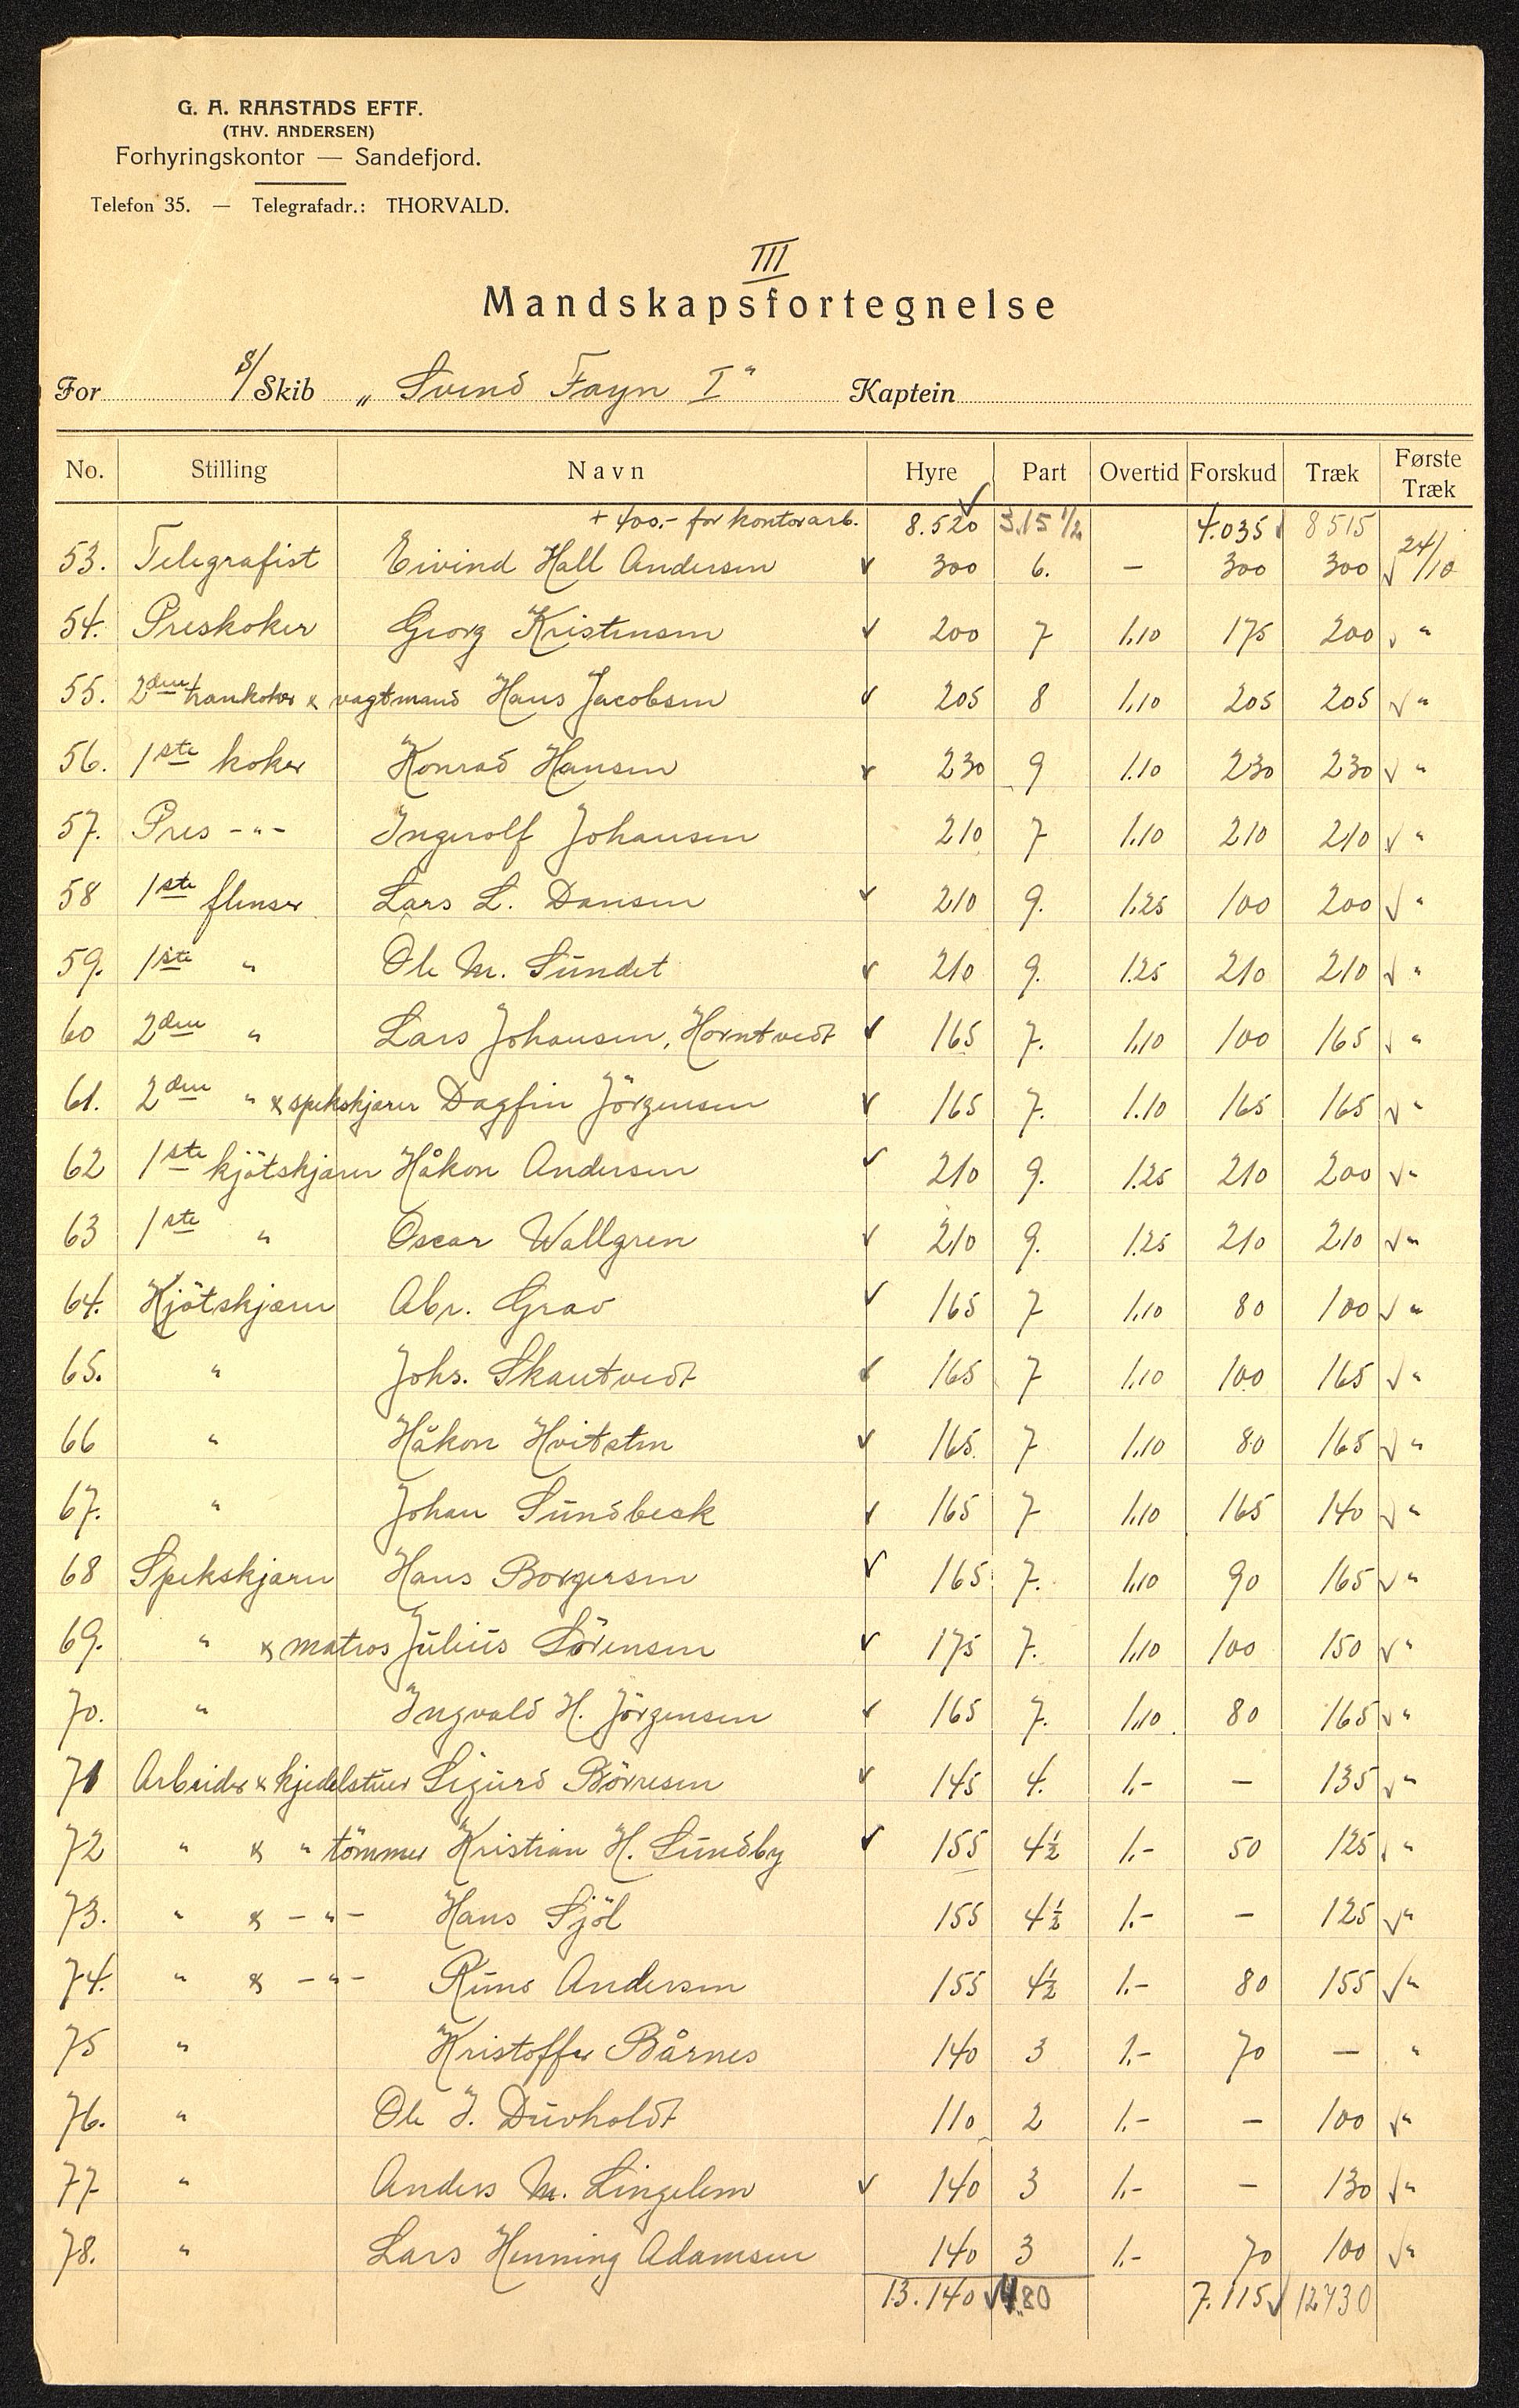 G. A. RAASTADS EFTF.
(THV. ANDERSEN)
Forhyringskontor — Sandefjord.
Telefon 35. — Telegrafadr.: THORVALD.
III
Mandskapsfortegnelse
For S/Skib „Svend Foyn I“ Kaptein
No. Stilling Navn Hyre Part Overtid Forskud Træk Første Træk
+ 400.- for kontorarb. 8.520 3.15 1/2 4.035 8515
53. Telegrafist Eivind Hall Andersen ✓ 300 6. — 300 300 ✓ 24/10
54. Preskoker Georg Kristensen ✓ 200 7 1,10 175 200 ✓ "
55. 2den trankoker & vagtmand Hans Jacobsen ✓ 205 8 1,10 205 205 ✓ "
56. 1ste koker Konrad Hansen ✓ 230 9 1.10 230 230 ✓ "
57. Pres -"- Ingerolf Johansen 210 7 1.10 210 210 ✓ "
58 1ste flenser Lars L. Dansen ✓ 210 9. 1.25 100 200 ✓ "
59. 1ste " Ole M. Sundet ✓ 210 9. 1.25 210 210 ✓ "
60 2den " Lars Johansen, Horntvedt ✓ 165 7. 1,10 100 165 ✓ "
61. 2den " & spekskjærer Dagfin Jörgensen ✓ 165 7. 1.10 165 165 ✓ "
62 1ste kjötskjærer Håkon Andersen ✓ 210 9. 1.25 210 200 ✓ "
63 1ste " Oscar Wallgren ✓ 210 9. 1.25 210 210 ✓ "
64. Kjötskjærer Abr. Grav ✓ 165 7 1,10 80 100 ✓ "
65. " Johs. Skautvedt ✓ 165 7 1,10 100 165 ✓ "
66 " Håkon Hvitsten ✓ 165. 7 1,10 80 165 ✓ "
67. " Johan Sundbeck ✓ 165 7 1,10 165 140 ✓ "
68 Spekskjærer Hans Borgersen ✓ 165 7. 1,10 90 165 ✓ "
69. " & matros Julius Sörensen ✓ 175 7. 1,10 100 150 ✓ "
70. " Ingvald H. Jörgensen ✓ 165 7. 1,10 80 165 ✓ "
71 Arbeider & kjedelstuer Sigurd Börresen ✓ 145 4. 1.- — 135 ✓ "
72 " & " tömmer Kristian H. Sundby ✓ 155 4½ 1.- 50 125 ✓ "
73. " & -"- Hans Sjöl 155 4½ 1.- — 125 ✓ "
74. " & -"- Andersen 155 4½ 1.- 80 155 ✓ "
75 " Kristoffer Bårnes 140 3 1.- 70 — "
76. " Ole J. Duvholdt 110 2 1.- — 100 ✓ "
77 " Anders M. Lingelem ✓ 140 3 1.- — 130 ✓ "
78. " Lars Henning Adamsen 140 3 1.- 70 100 ✓ "
13.140 ✓ 480 7.115 ✓ 12430